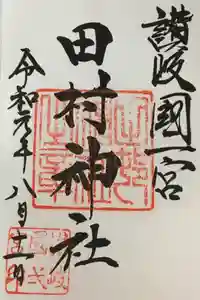 讃岐國一宮
田村神社
令和元年八月十一日